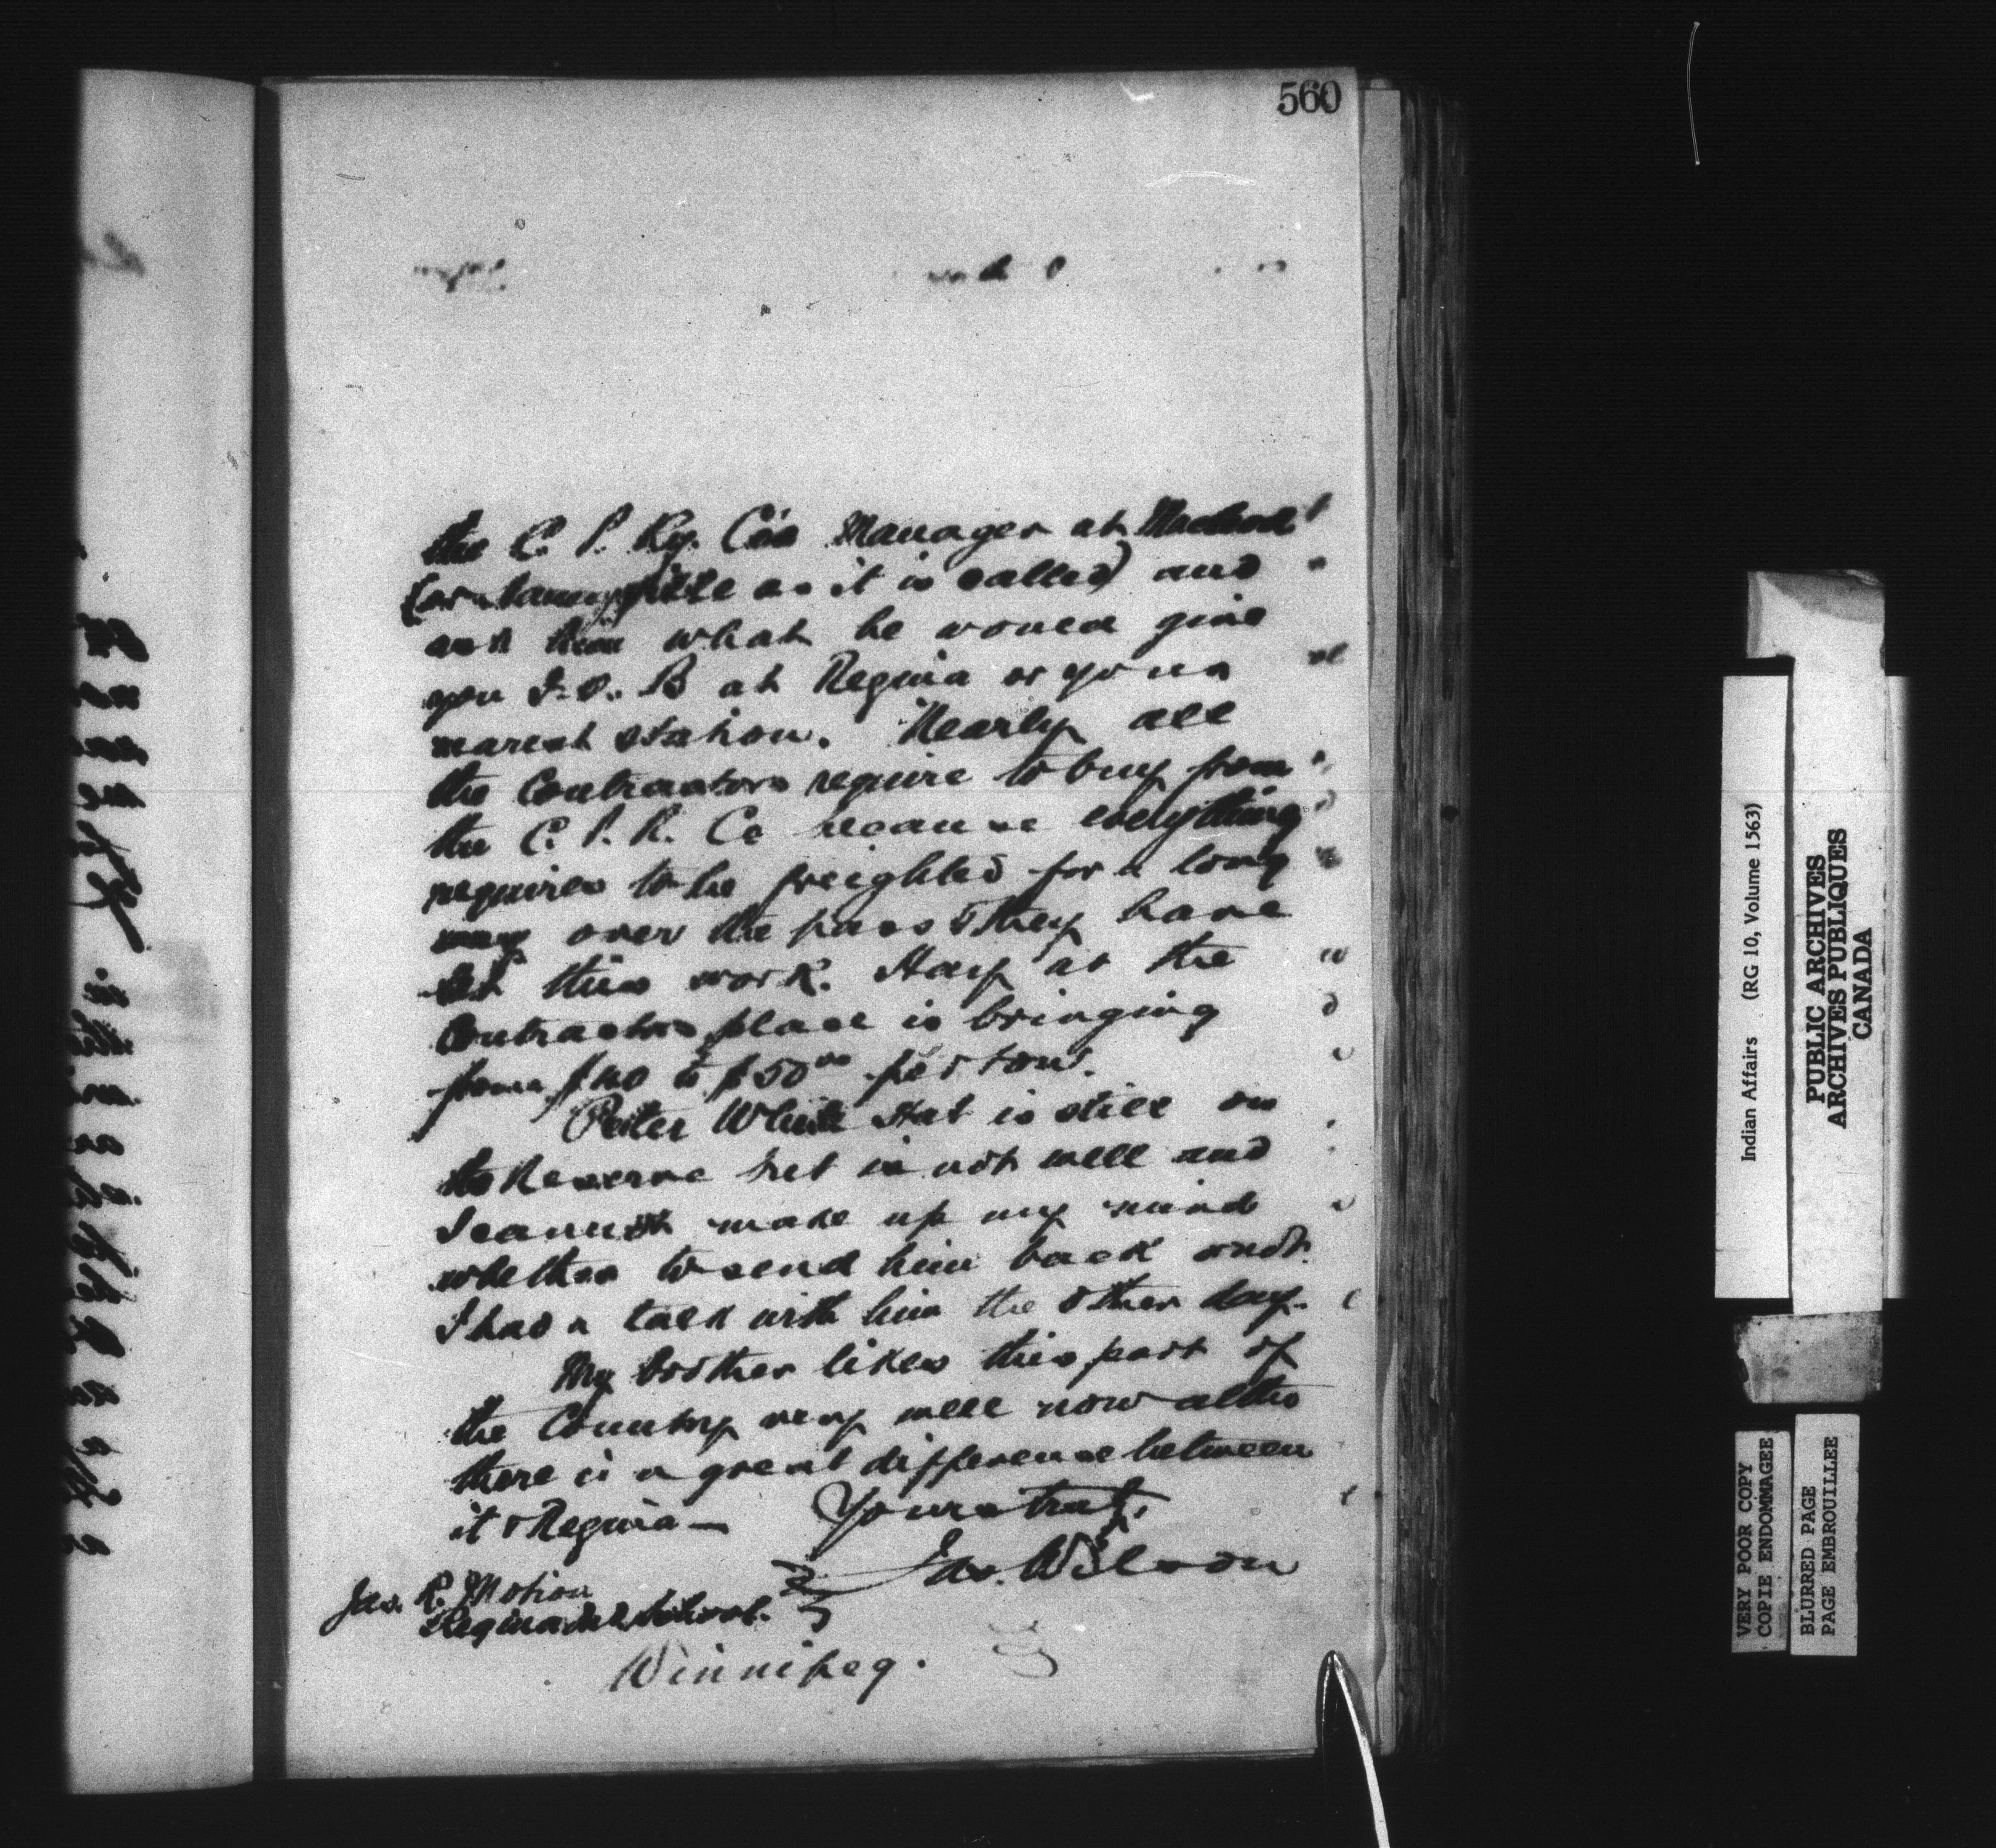 560
the C. P. Ry. Co's Manager at Macleod
(or Haneyville as it is called) and
ask him what he would give
you F.O.B at Regina or your
nearest station. Nearly all
the Contractors require to buy from
the C. P. R. Co because everything
requires to be freighted for a long
way over the pass & they have
let this work. Hay at the
Contractors place is bringing
from $40 to $50.00 per ton.
Peter White Hat is still on
the Reserve but is not well and
I cannot make up my mind
whether to send him back or not.
I had a talk with him the other day.
My brother likes this part of
the Country very well now altho
there is a great difference between
it & Regina —
Yours truly,
Jas. Wilson
Jas. R. Motion
Regina Ind School.
Winnipeg.
Indian Affairs (RG 10, Volume 1563)
PUBLIC ARCHIVES
ARCHIVES PUBLIQUES
CANADA
VERY POOR COPY
COPIE ENDOMMAGEE
BLURRED PAGE
PAGE EMBROUILLEE